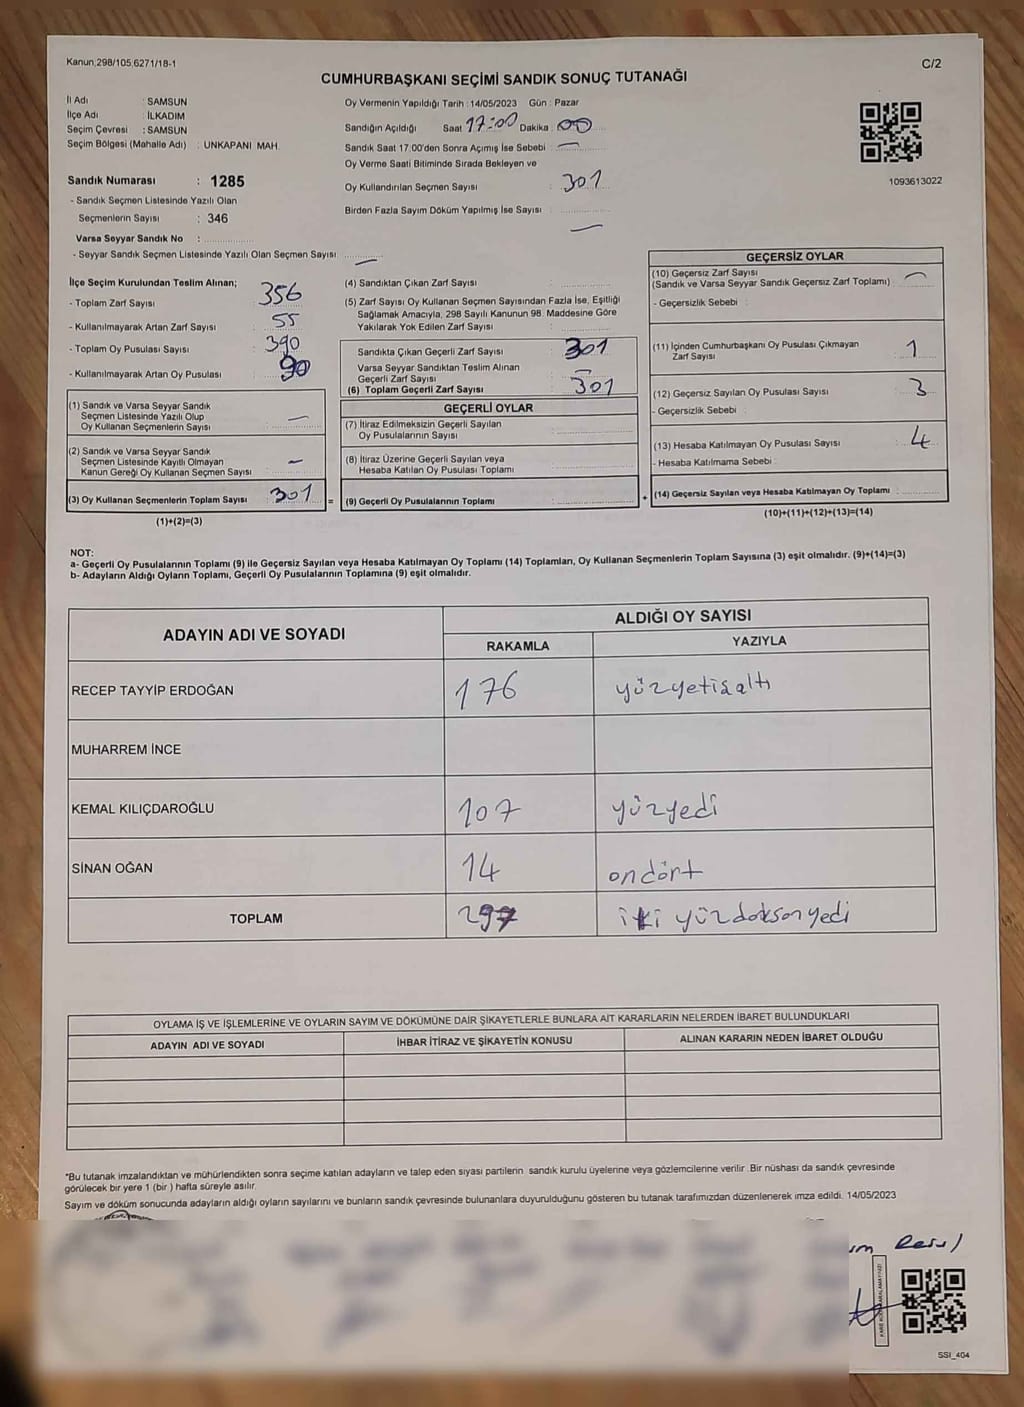 Kanun,298/105,6271/18-1
C/2
CUMHURBAŞKANI SEÇİMİ SANDIK SONUÇ TUTANAĞI
İl Adı : SAMSUN
İlçe Adı : İLKADIM
Seçim Çevresi : SAMSUN
Seçim Bölgesi (Mahalle Adı) : UNKAPANI MAH.
Sandık Numarası : 1285
- Sandık Seçmen Listesinde Yazılı Olan
Seçmenlerin Sayısı : 346
Varsa Seyyar Sandık No :
- Seyyar Sandık Seçmen Listesinde Yazılı Olan Seçmen Sayısı : —
Oy Vermenin Yapıldığı Tarih : 14/05/2023 Gün : Pazar
Sandığın Açıldığı Saat 17:00 Dakika : 00
Sandık Saat 17:00'den Sonra Açımış İse Sebebi : —
Oy Verme Saati Bitiminde Sırada Bekleyen ve
Oy Kullandırılan Seçmen Sayısı : 301
Birden Fazla Sayım Döküm Yapılmış İse Sayısı : —
1093613022
İlçe Seçim Kurulundan Teslim Alınan;
- Toplam Zarf Sayısı : 356
- Kullanılmayarak Artan Zarf Sayısı : 55
- Toplam Oy Pusulası Sayısı : 390
- Kullanılmayarak Artan Oy Pusulası : 90
(1) Sandık ve Varsa Seyyar Sandık
Seçmen Listesinde Yazılı Olup
Oy Kullanan Seçmenlerin Sayısı : —
(2) Sandık ve Varsa Seyyar Sandık
Seçmen Listesinde Kayıtlı Olmayan
Kanun Gereği Oy Kullanan Seçmen Sayısı : —
(3) Oy Kullanan Seçmenlerin Toplam Sayısı : 301 =
(1)+(2)=(3)
(4) Sandıktan Çıkan Zarf Sayısı :
(5) Zarf Sayısı Oy Kullanan Seçmen Sayısından Fazla İse, Eşitliği
Sağlamak Amacıyla, 298 Sayılı Kanunun 98. Maddesine Göre
Yakılarak Yok Edilen Zarf Sayısı :
Sandıkta Çıkan Geçerli Zarf Sayısı : 301
Varsa Seyyar Sandıktan Teslim Alınan
Geçerli Zarf Sayısı : —
(6) Toplam Geçerli Zarf Sayısı : 301
GEÇERLİ OYLAR
(7) İtiraz Edilmeksizin Geçerli Sayılan
Oy Pusulalarının Sayısı :
(8) İtiraz Üzerine Geçerli Sayılan veya
Hesaba Katılan Oy Pusulası Toplamı :
(9) Geçerli Oy Pusulalarının Toplamı : +
GEÇERSİZ OYLAR
(10) Geçersiz Zarf Sayısı
(Sandık ve Varsa Seyyar Sandık Geçersiz Zarf Toplamı) : —
- Geçersizlik Sebebi :
(11) İçinden Cumhurbaşkanı Oy Pusulası Çıkmayan
Zarf Sayısı : 1
(12) Geçersiz Sayılan Oy Pusulası Sayısı : 3
- Geçersizlik Sebebi :
(13) Hesaba Katılmayan Oy Pusulası Sayısı : 4
- Hesaba Katılmama Sebebi :
(14) Geçersiz Sayılan veya Hesaba Katılmayan Oy Toplamı :
(10)+(11)+(12)+(13)=(14)
NOT:
a- Geçerli Oy Pusulalarının Toplamı (9) ile Geçersiz Sayılan veya Hesaba Katılmayan Oy Toplamı (14) Toplamları, Oy Kullanan Seçmenlerin Toplam Sayısına (3) eşit olmalıdır. (9)+(14)=(3)
b- Adayların Aldığı Oyların Toplamı, Geçerli Oy Pusulalarının Toplamına (9) eşit olmalıdır.
ADAYIN ADI VE SOYADI
ALDIĞI OY SAYISI
RAKAMLA YAZIYLA
RECEP TAYYİP ERDOĞAN 176 yüzyetişaltı
MUHARREM İNCE
KEMAL KILIÇDAROĞLU 107 yüzyedi
SİNAN OĞAN 14 ondört
TOPLAM 297 iki yüzdoksanyedi
OYLAMA İŞ VE İŞLEMLERİNE VE OYLARIN SAYIM VE DÖKÜMÜNE DAİR ŞİKAYETLERLE BUNLARA AİT KARARLARIN NELERDEN İBARET BULUNDUKLARI
ADAYIN ADI VE SOYADI İHBAR İTİRAZ VE ŞİKAYETİN KONUSU ALINAN KARARIN NEDEN İBARET OLDUĞU
*Bu tutanak imzalandıktan ve mühürlendikten sonra seçime katılan adayların ve talep eden siyası partilerin sandık kurulu üyelerine veya gözlemcilerine verilir .Bir nüshası da sandık çevresinde
görülecek bir yere 1 (bir ) hafta süreyle asılır.
Sayım ve döküm sonucunda adayların aldığı oyların sayılarını ve bunların sandık çevresinde bulunanlara duyurulduğunu gösteren bu tutanak tarafımızdan düzenlenerek imza edildi. 14/05/2023
Resul
SSI_404